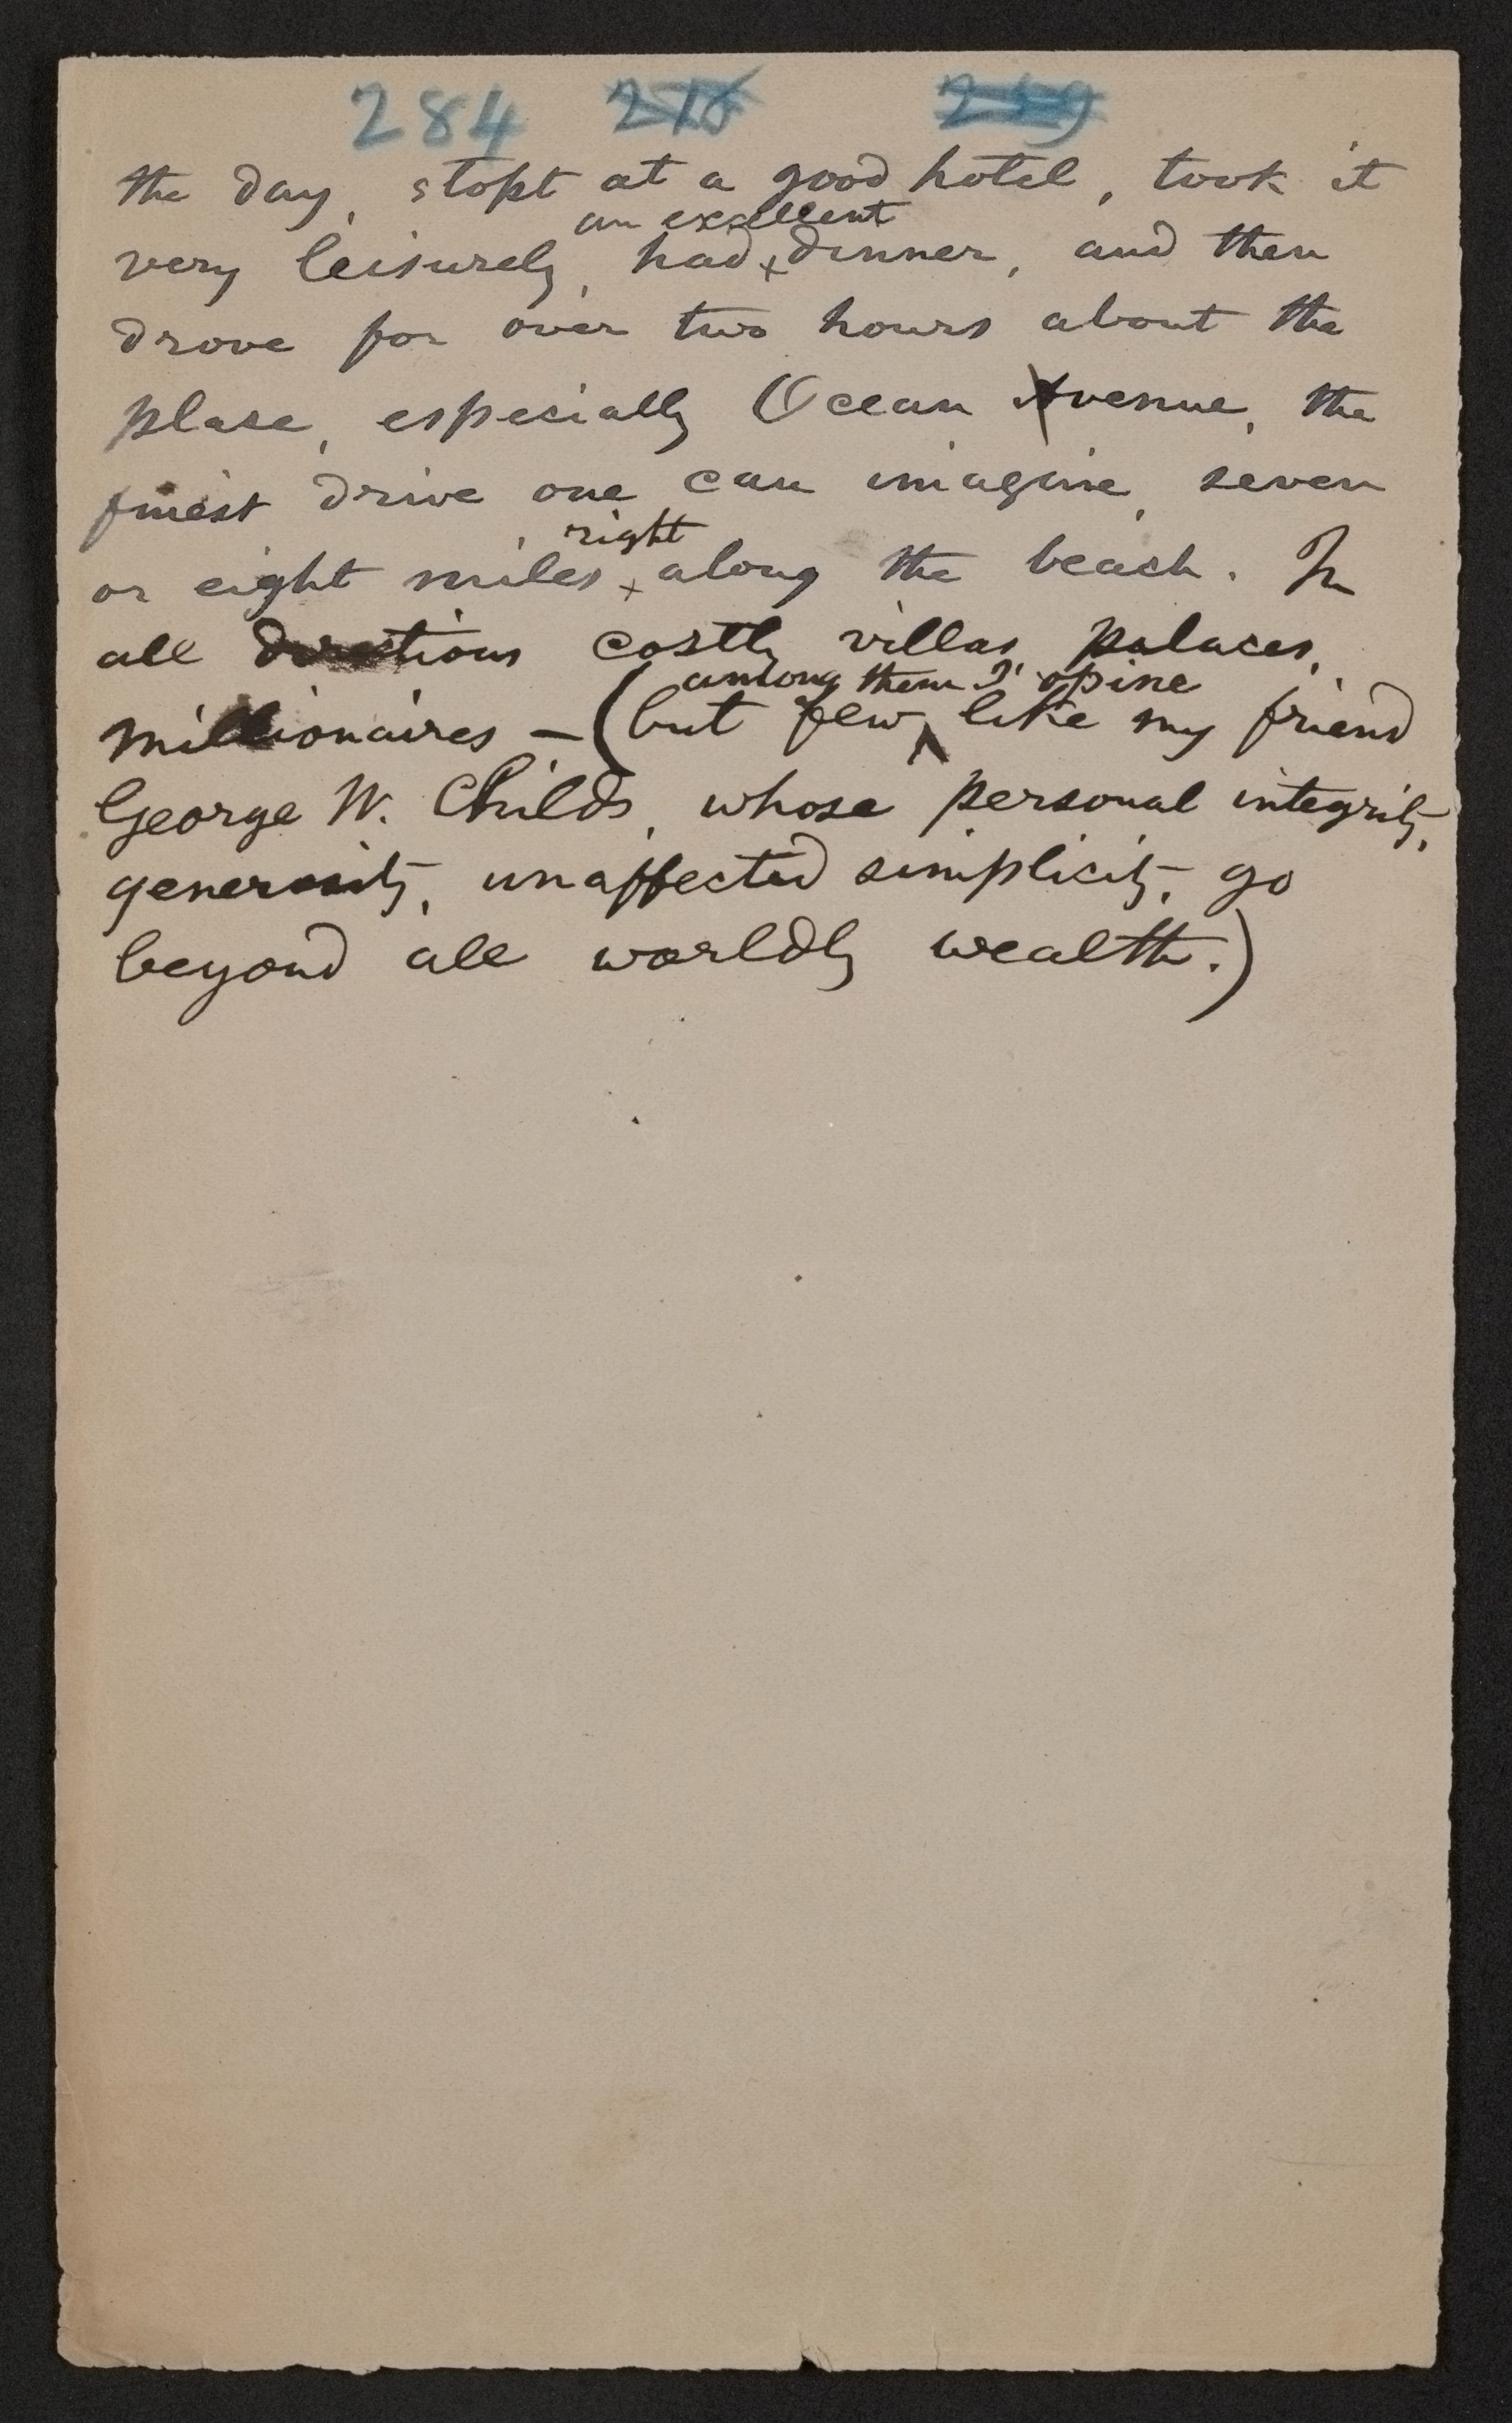 284
the day, stopt at a good hotel, took it
an excellent
very leisurely, had dinner, and then
drove for over two hours about the
place, especially Ocean Avenue, the
finest drive one can imagine, seven
right
or eight miles along the beach. In
all directions costly villas, palaces,
among them I opine
millionaires — (but few like my friend
George W. Childs, whose personal integrity,
generosity, unaffected simplicity, go
beyond all worldly wealth.)